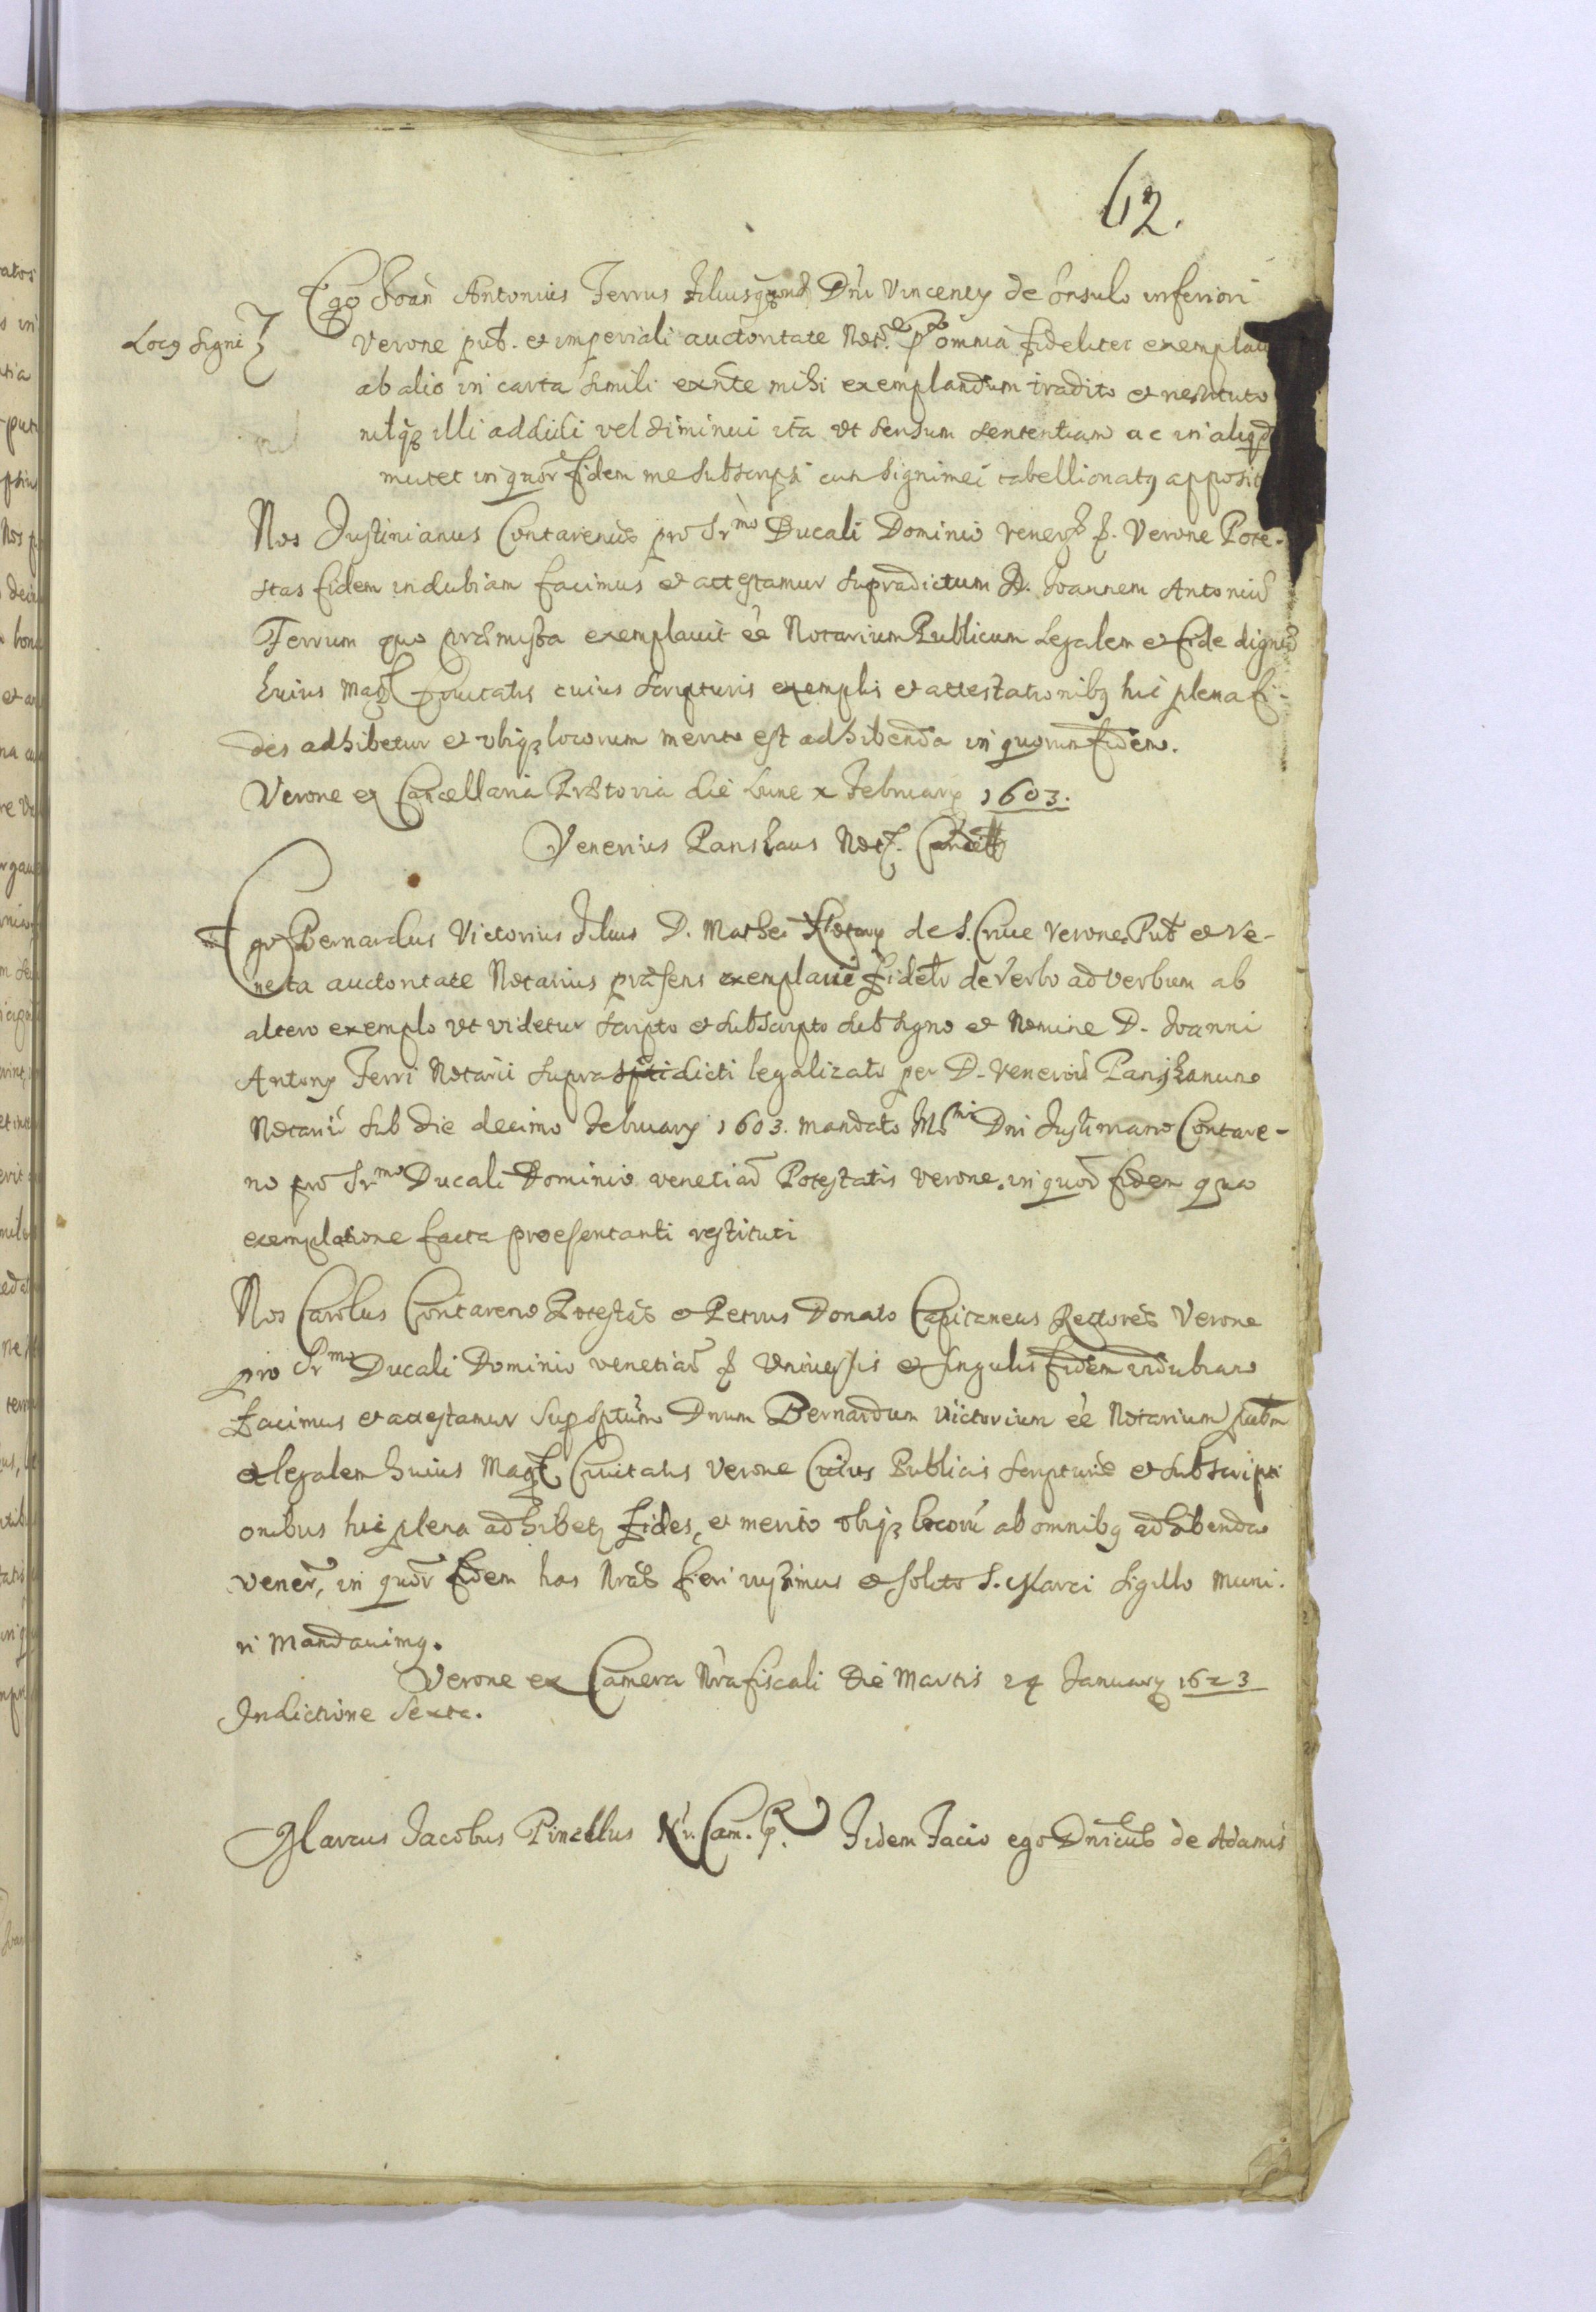 62.
Ego Joan̄ Antonius Ferrus filius qͫ Dn̄i Vincentij de Insulo inferiori
Locꝰ Signi
Verone pub̄. et imperiali auctoritate Not. omnia fideliter exemplaui
ab alio in carta simili exn̄te mihi exemplandum tradito et restituto
nilqꝫ illi addidi vel diminui ita vt sensum sententiam ac in aliq
mutet in quor̄ fidem me subscripsi cum signi mei tabellionatꝰ apposit
Nos Justinianus Contarenus pro Sr̄mo Ducali Dominio Venet. &. Verone Pote-
stas fidem indubiam facimus et attestamur supradictum D. Joannem Antoniū
Ferrum qui præmissa exemplauit eē Notarium Publicum legalem et fide dignū
huius Mag. Ciuitatis cuius scripturis exemplis et attestationibꝰ hic plena fi-
des adhibetur et vbiqꝫ locorum merito est adhibenda in quorum fidem.
Verone ex Cancellaria Prætoria die Lune x February 1603.
Venerius Not.
Ego Bernardus Victorius filius D. Mathei Notarij de S. Cruce Verone Pub̄ et Ve-
neta auctoritate Notarius præsens exemplaui fidelr̄ de verbo ad verbum ab
altero exemplo vt videtur scripto et subscripto sub signo et Nomine D. Joanni
Antonij Ferri Notarii supradicti legalizato per D. Veneriū
Notariū sub die decimo February 1603. mandato Dn̄i Justiniano Contare-
no pro Sr̄mo Ducali Dominio venetiar̄ Potestatis Verone. in quor̄ fidem qua
exemplatione facta præsentanti restituti
Nos Carolus Contareno Potestas et Petrus Donato Capitaneus Rectores Verone
pro Sr̄mo Ducali Dominio venetiar̄ & Vniuersis et singulis fidem indubiam
facimus et attestamur Dn̄um Bernardum Victorium eē Notarium pub̄m
et legalem huius Mag. Ciuitatis Verone Cuius Publicis scripturis et subscripti
onibus hic plena adhibetꝫ fides, et merito vbiqꝫ locorū ab omnibꝰ adhibenda
venet, in quor̄ fidem has Nr̄as fieri iussimus et solito S. Marci sigillo muni-
ri Mandauimꝰ.
Verone ex Camera Nr̄a fiscali Die Martis 24 January 1623
Indictione Sexta.
Marcus Jacobus Pinellus Nr. Cam. Fidem Facio ego Dn̄icus de Adamis